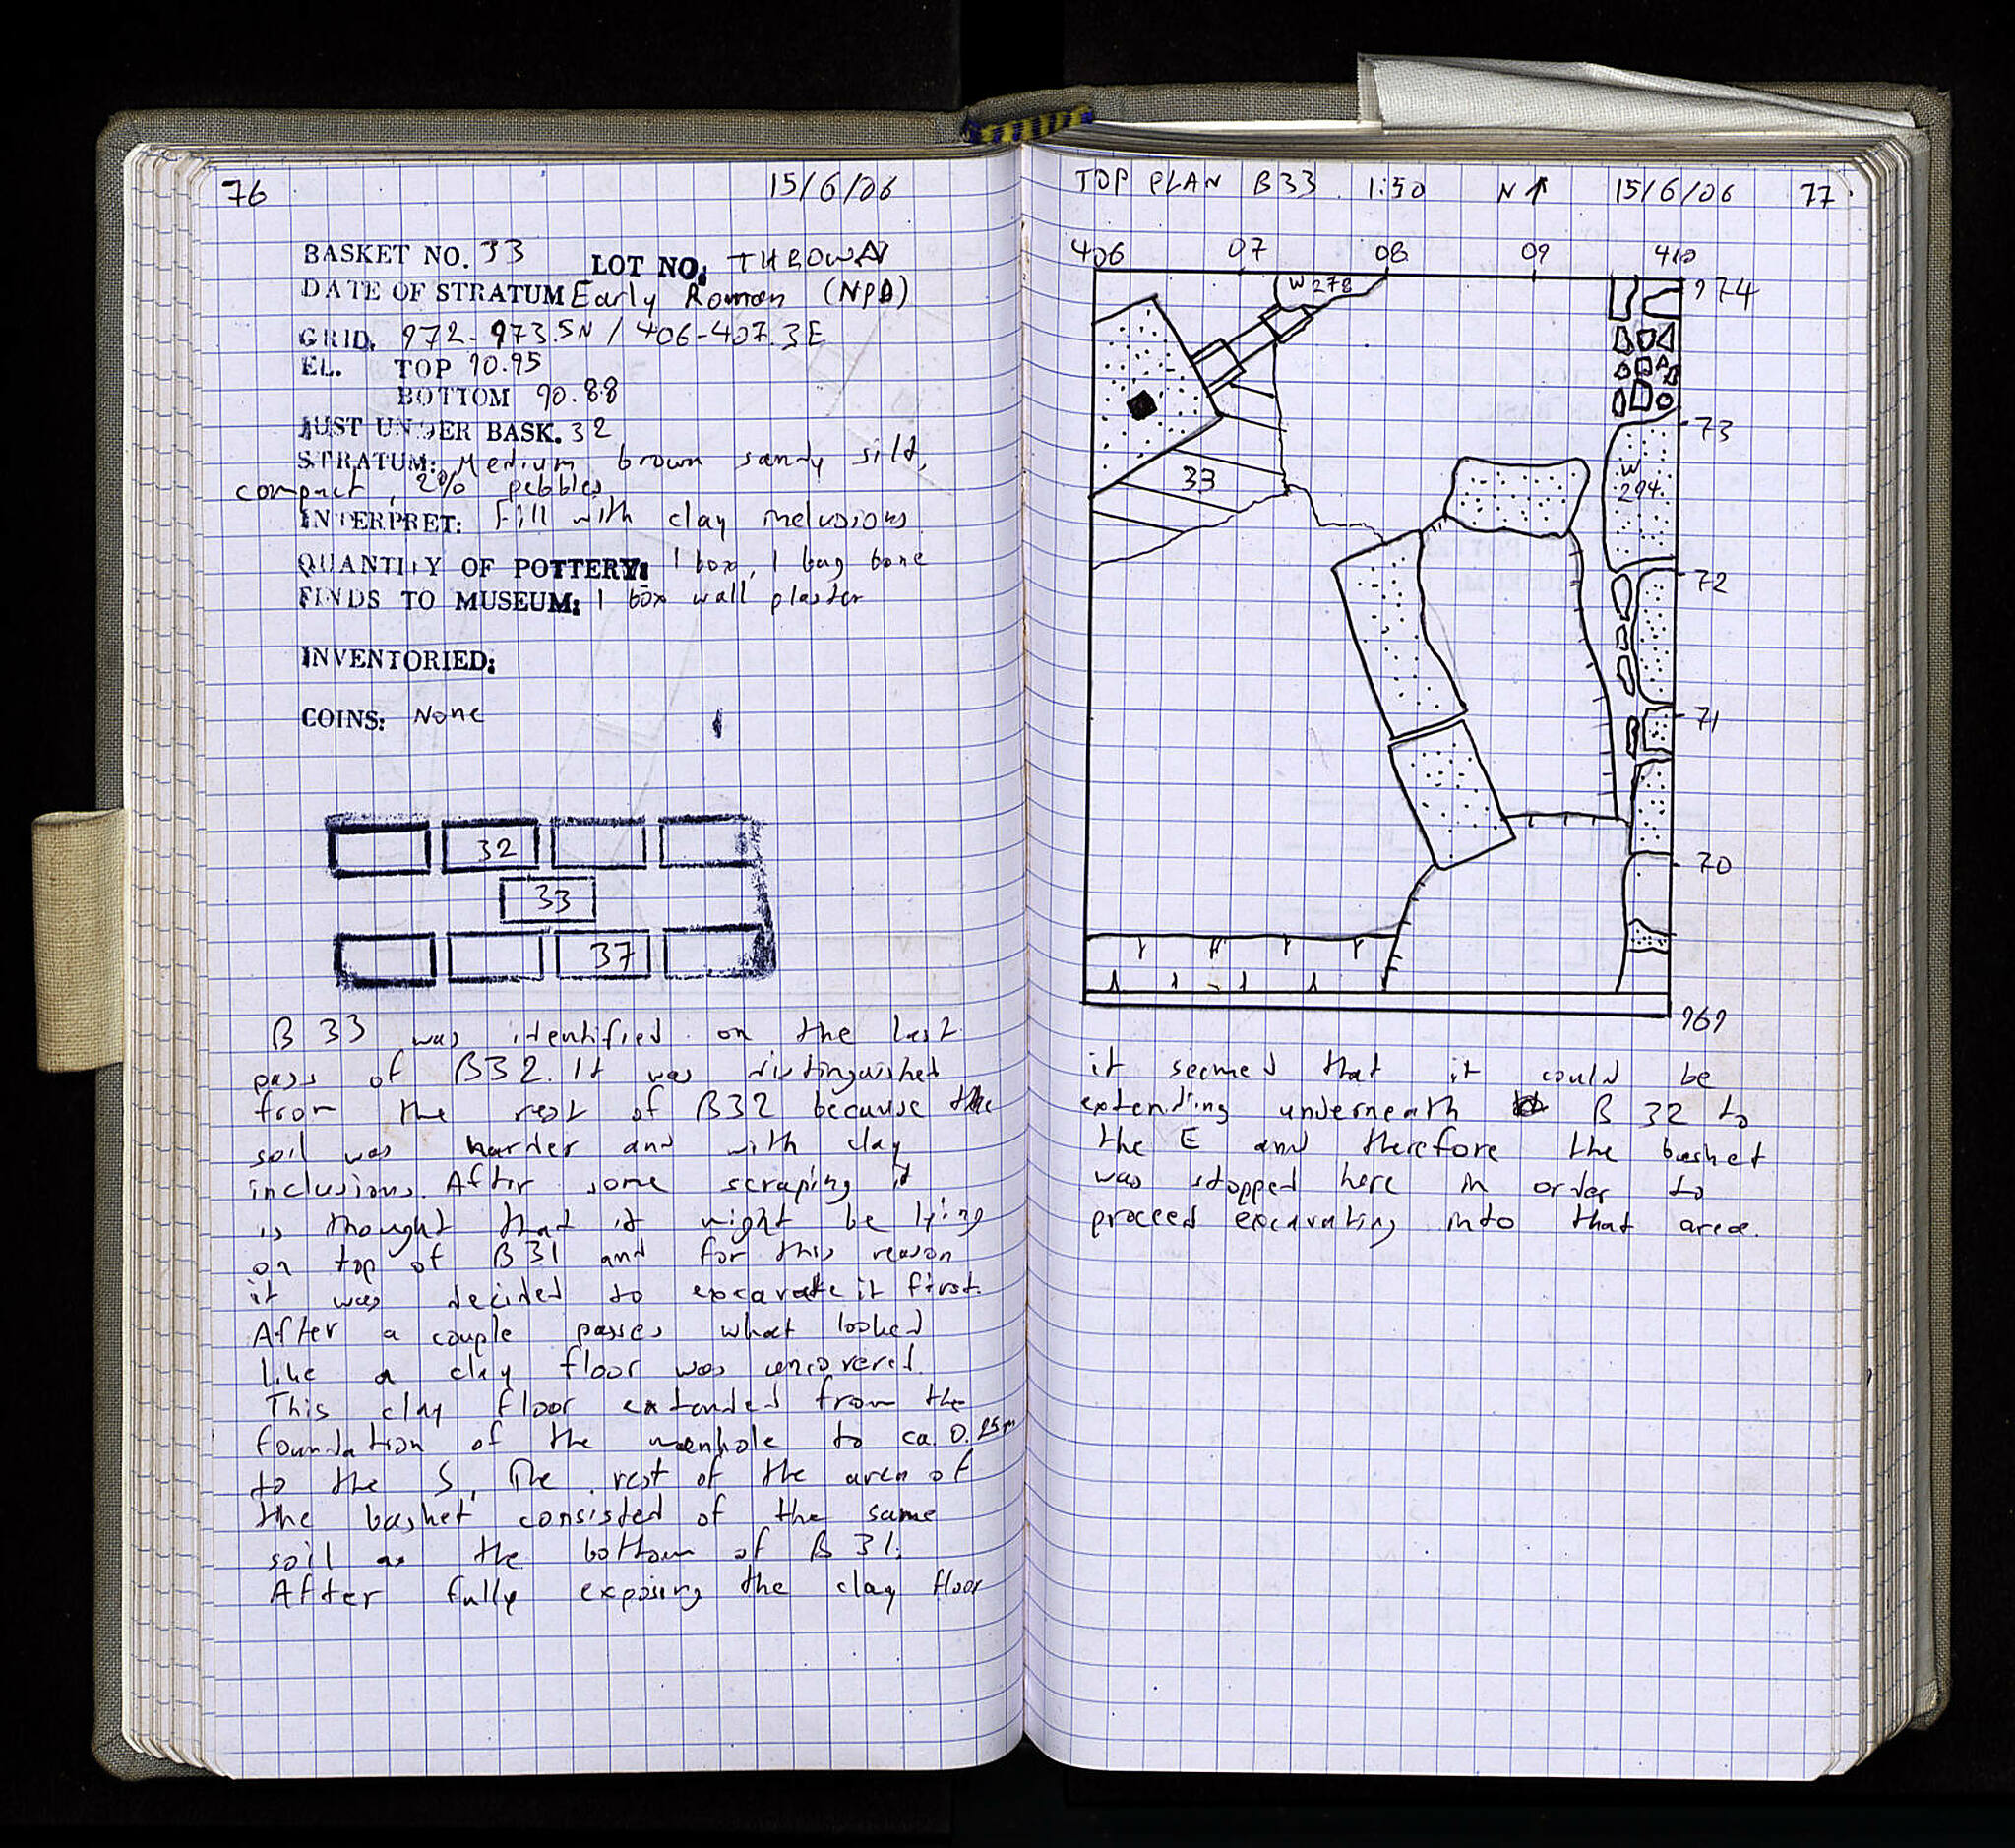 76
15/6/06
BASKET NO. 33 LOT NO. THROWN
DATE OF STRATUM Early Roman (NPD)
GRID. 972-973.5N / 406-407.3E
EL. TOP 90.95
BOTTOM 90.88
JUST UNDER BASK. 32
STRATUM: Medium brown sandy silt,
compact, 2% pebbles
INTERPRET: Fill with clay inclusions
QUANTITY OF POTTERY: 1 box, 1 bag bone
FINDS TO MUSEUM: 1 box wall plaster
INVENTORIED:
COINS: None
32
33
37
B 33 was identified on the last
pass of B32. It was distinguished
from the rest of B32 because the
soil was harder and with clay
inclusions. After some scraping it
is thought that it might be lying
on top of B31 and for this reason
it was decided to excavate it first.
After a couple passes what looked
like a clay floor was uncovered.
This clay floor extended from the
foundation of the manhole to ca. 0.25m
to the S. The rest of the area of
the basket consisted of the same
soil as the bottom of B 31.
After fully exposing the clay floor
TOP PLAN B33 1:50 N↑ 15/6/06 77
406 07 08 09 410
W278
974
73
33
W
294
72
71
70
969
it seemed that it could be
extending underneath B 32 to
the E and therefore the basket
was stopped here in order to
proceed excavating into that area.